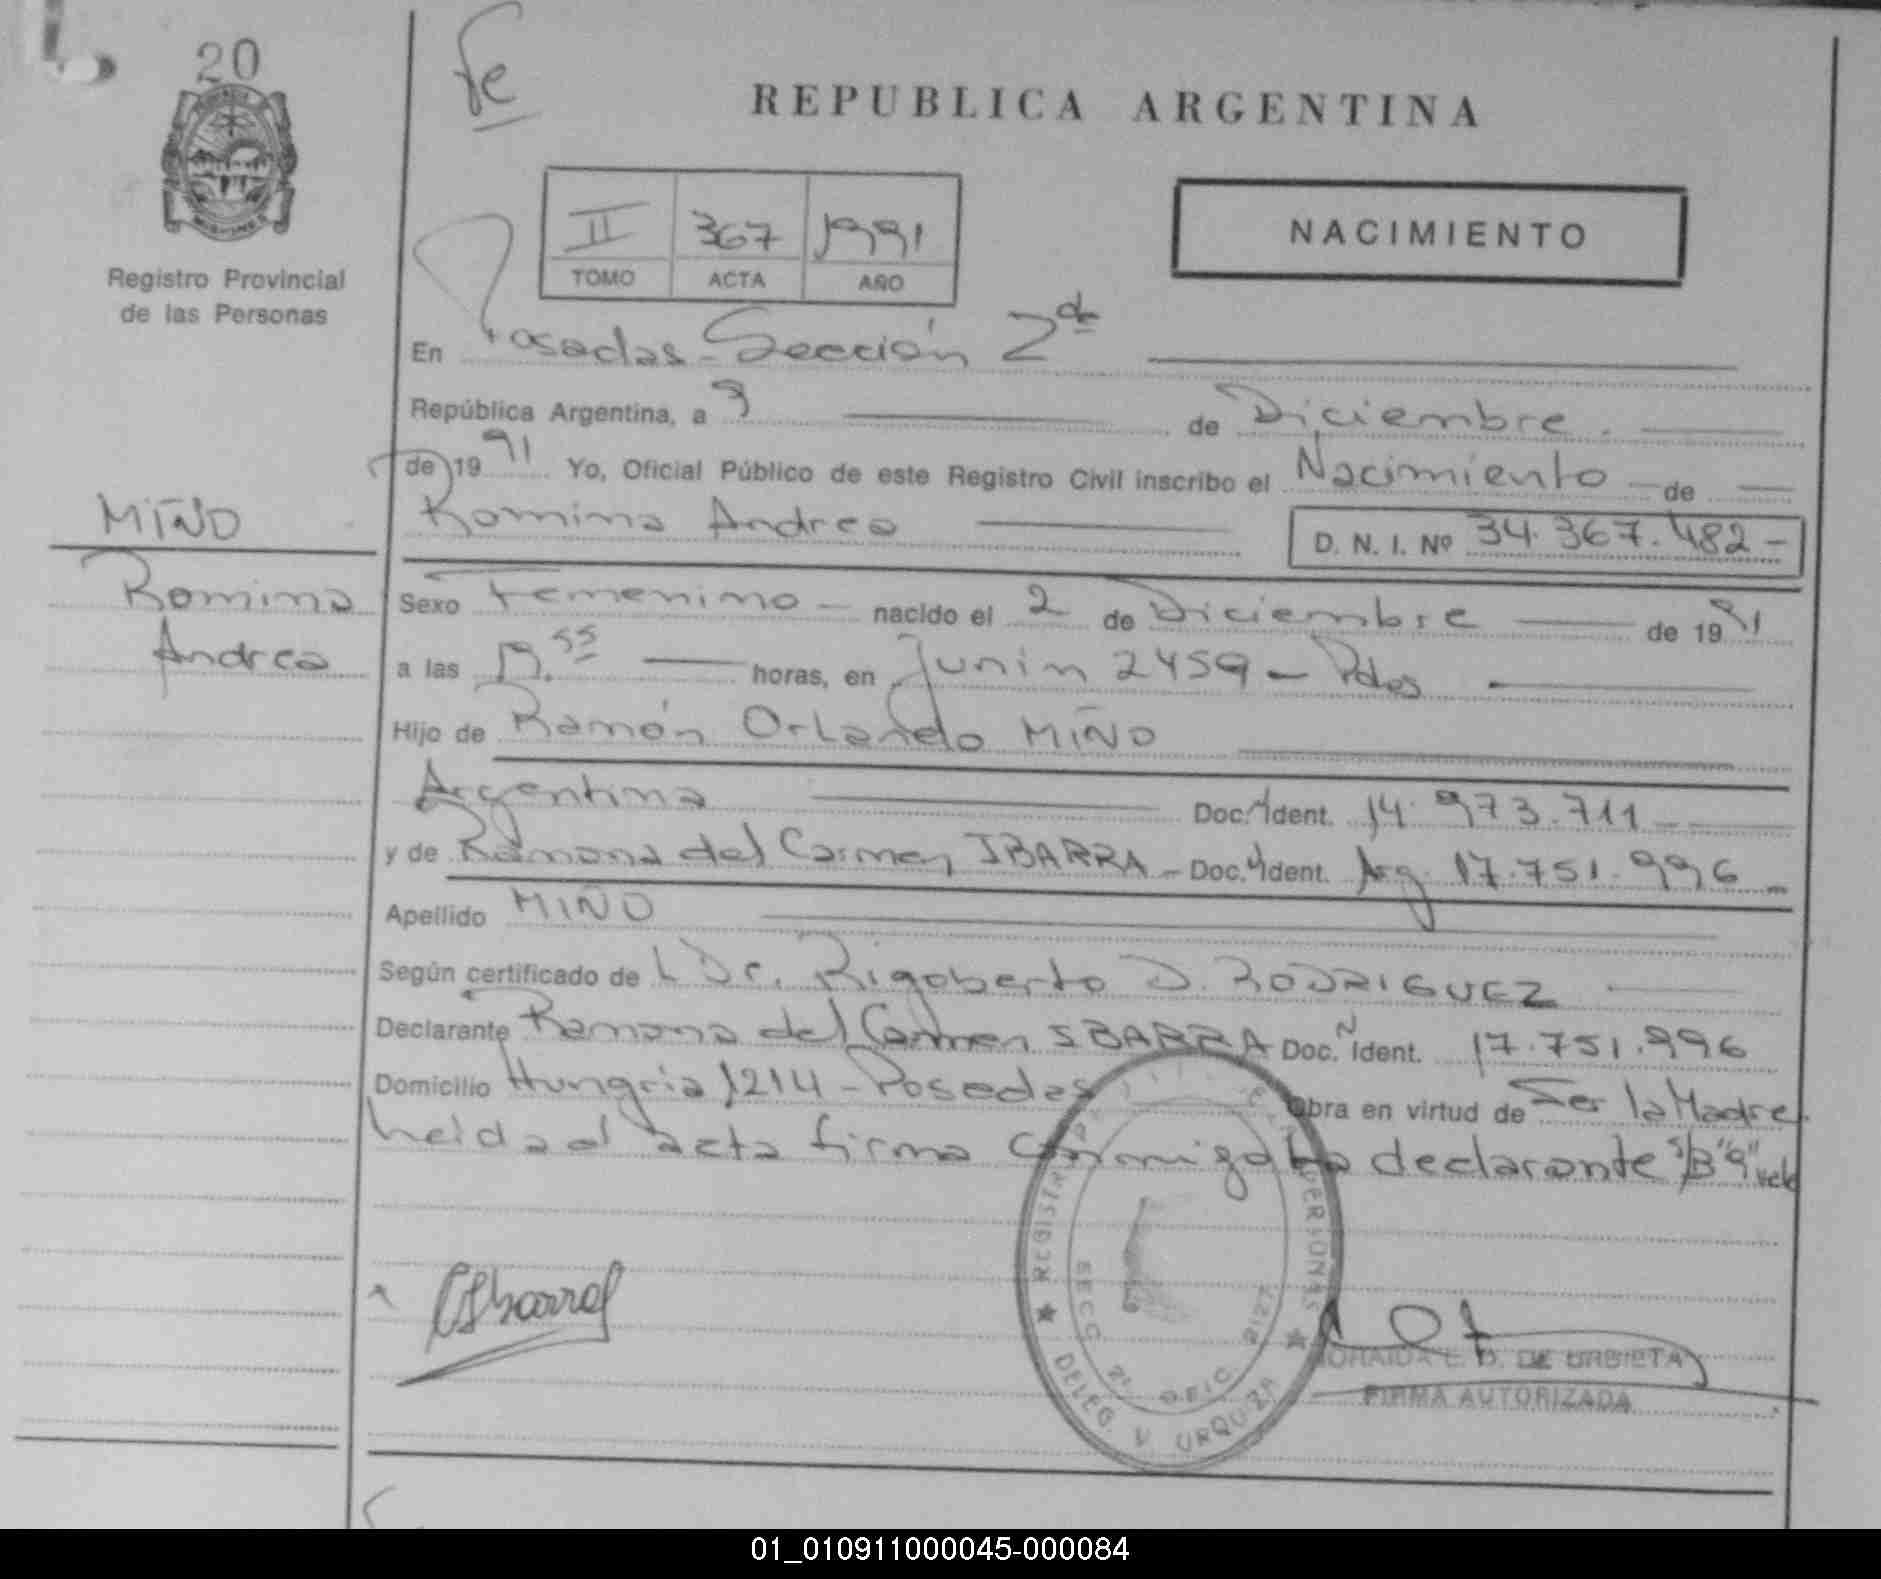 20
Fe
REPUBLICA ARGENTINA
II 367 1991
TOMO ACTA AÑO
NACIMIENTO
Registro Provincial
de las Personas
En Posadas - Sección 2da
República Argentina, a 3 de Diciembre.
de 1991 Yo, Oficial Público de este Registro Civil inscribo el Nacimiento de
Romina Andrea D. N. I. Nº 34.367.482-
MIÑO
Romina
Andrea
Sexo Femenino - nacido el 2 de Diciembre de 1991
a las 55 horas, en Junin 2459 - Pdas
Hijo de Ramón Orlando MIÑO
Argentina Doc. Ident. 14.973.711
y de Ramona del Carmen IBARRA - Doc. Ident. Arg. 17.751.996
Apellido MIÑO
Según certificado de L Dr. Rigoberto D. RODRIGUEZ
Declarante Ramona del Carmen IBARRA Doc. N Ident. 17.751.996
Domicilio Hungria 1214 - Posadas Obra en virtud de Ser la Madre.
Leida el acta firma conmigo la declarante s/B "9" vale
REGISTRO PERSONAS
SECC 2º
DELEG. V. URQUIZA
CIbarra
DE URBIETA
FIRMA AUTORIZADA
01_010911000045-000084